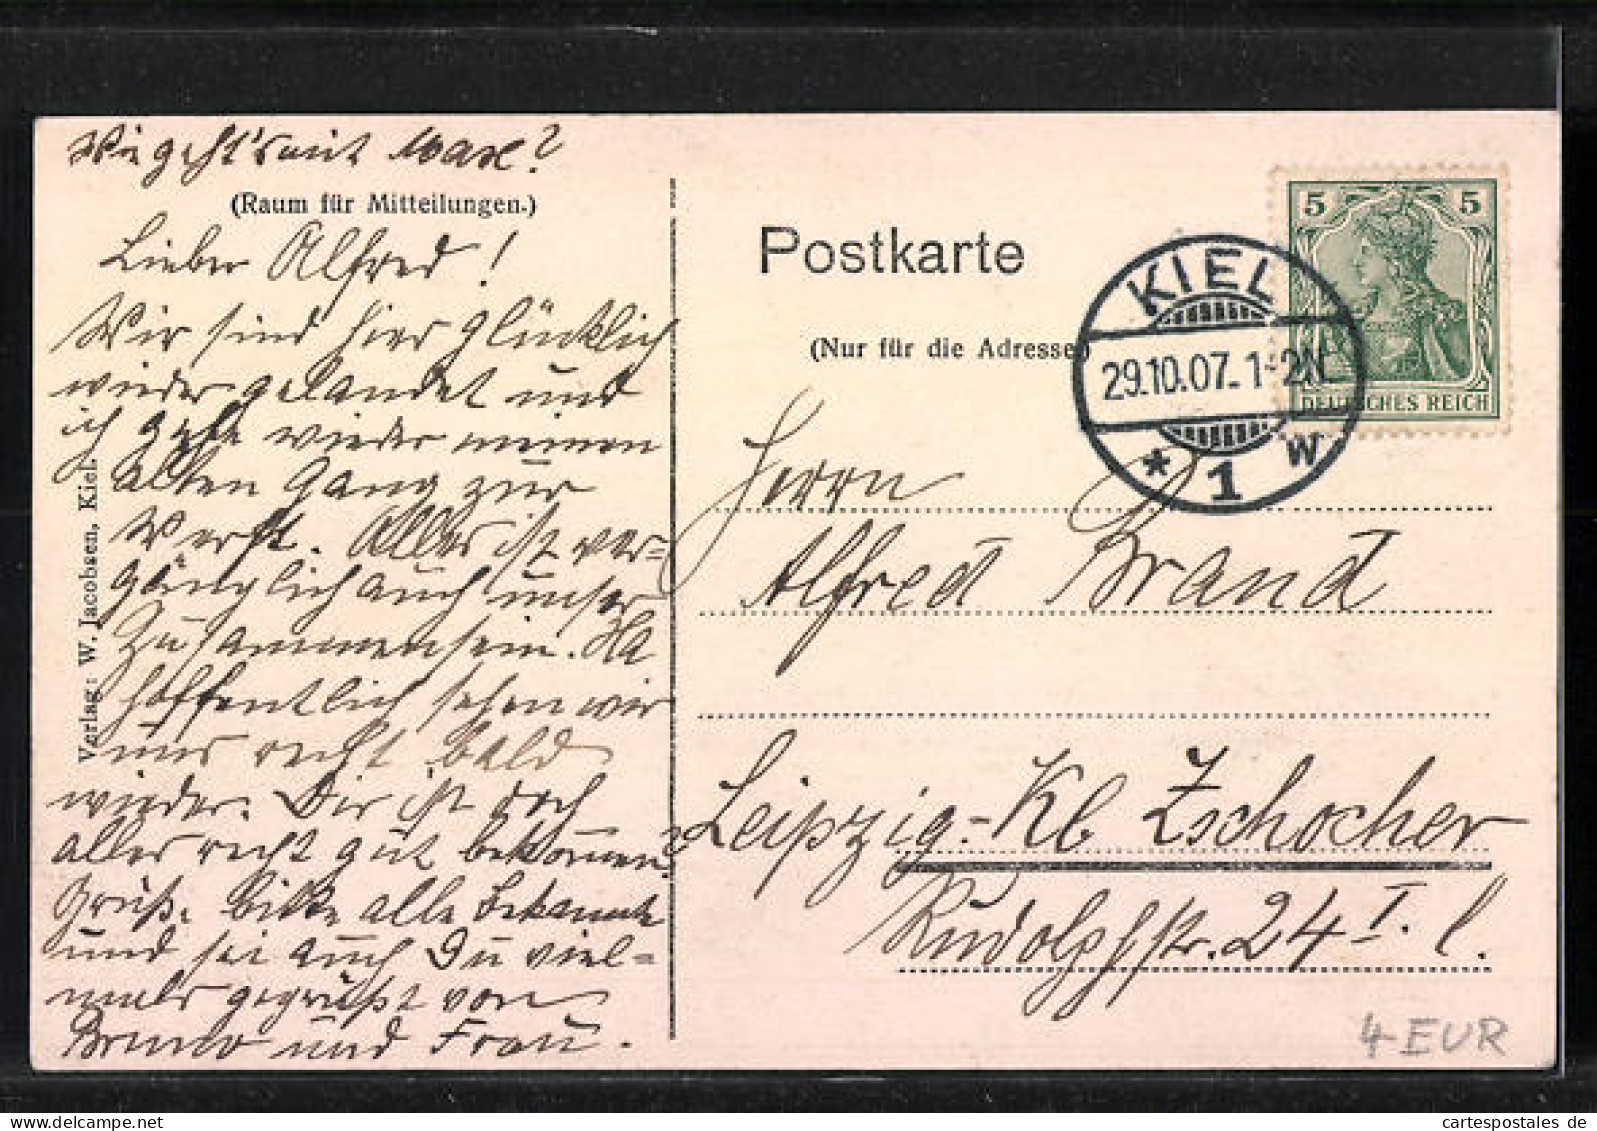 Wie geht's mit Max?
(Raum für Mitteilungen.)
Lieber Alfred!
Wir sind hier glücklich
wieder gelandet und
ich gehe wieder meinen
alten Gang zur
Werft. Alles ist ver=
gänglich auch unser
Zusammensein. Na
hoffentlich sehen wir
uns recht bald
wieder. Dir ist doch
alles recht gut bekommen?
Grüße bitte alle Bekannte
und sei auch Du viel=
mals gegrüßt von
Bruno und Frau.
Verlag: W. Jacobsen, Kiel.
Postkarte
(Nur für die Adresse)
5 5
DEUTSCHES REICH
KIEL
29.10.07. 1-2N.
* 1 w
Herrn
Alfred Brand
Leipzig-Kl Zschocher
Rudolphstr. 24 I. l.
4 EUR
cartespostales de